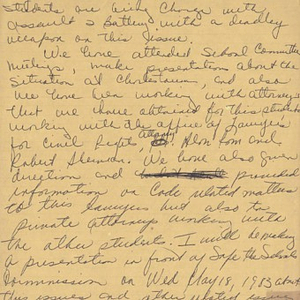 students are being charge with
assault & battery with a deadly
weapon on this issue.
We have attended School Committee
Meetings, make presentation about the
situation at Charlestown, and also
we have been working with attorneys
that we have obtained for this students
working with the office of Lawyers
for Civil Rights Attorney Alan Rom and
Robert Sherman. We have also given
direction and provided
information on Code related matters
to this lawyers and also to
private Attorneys working with
the other students. I will be making
a presentation in front of Safe the Schools
Commission on Wed May 18, 1983 about
this issues and other